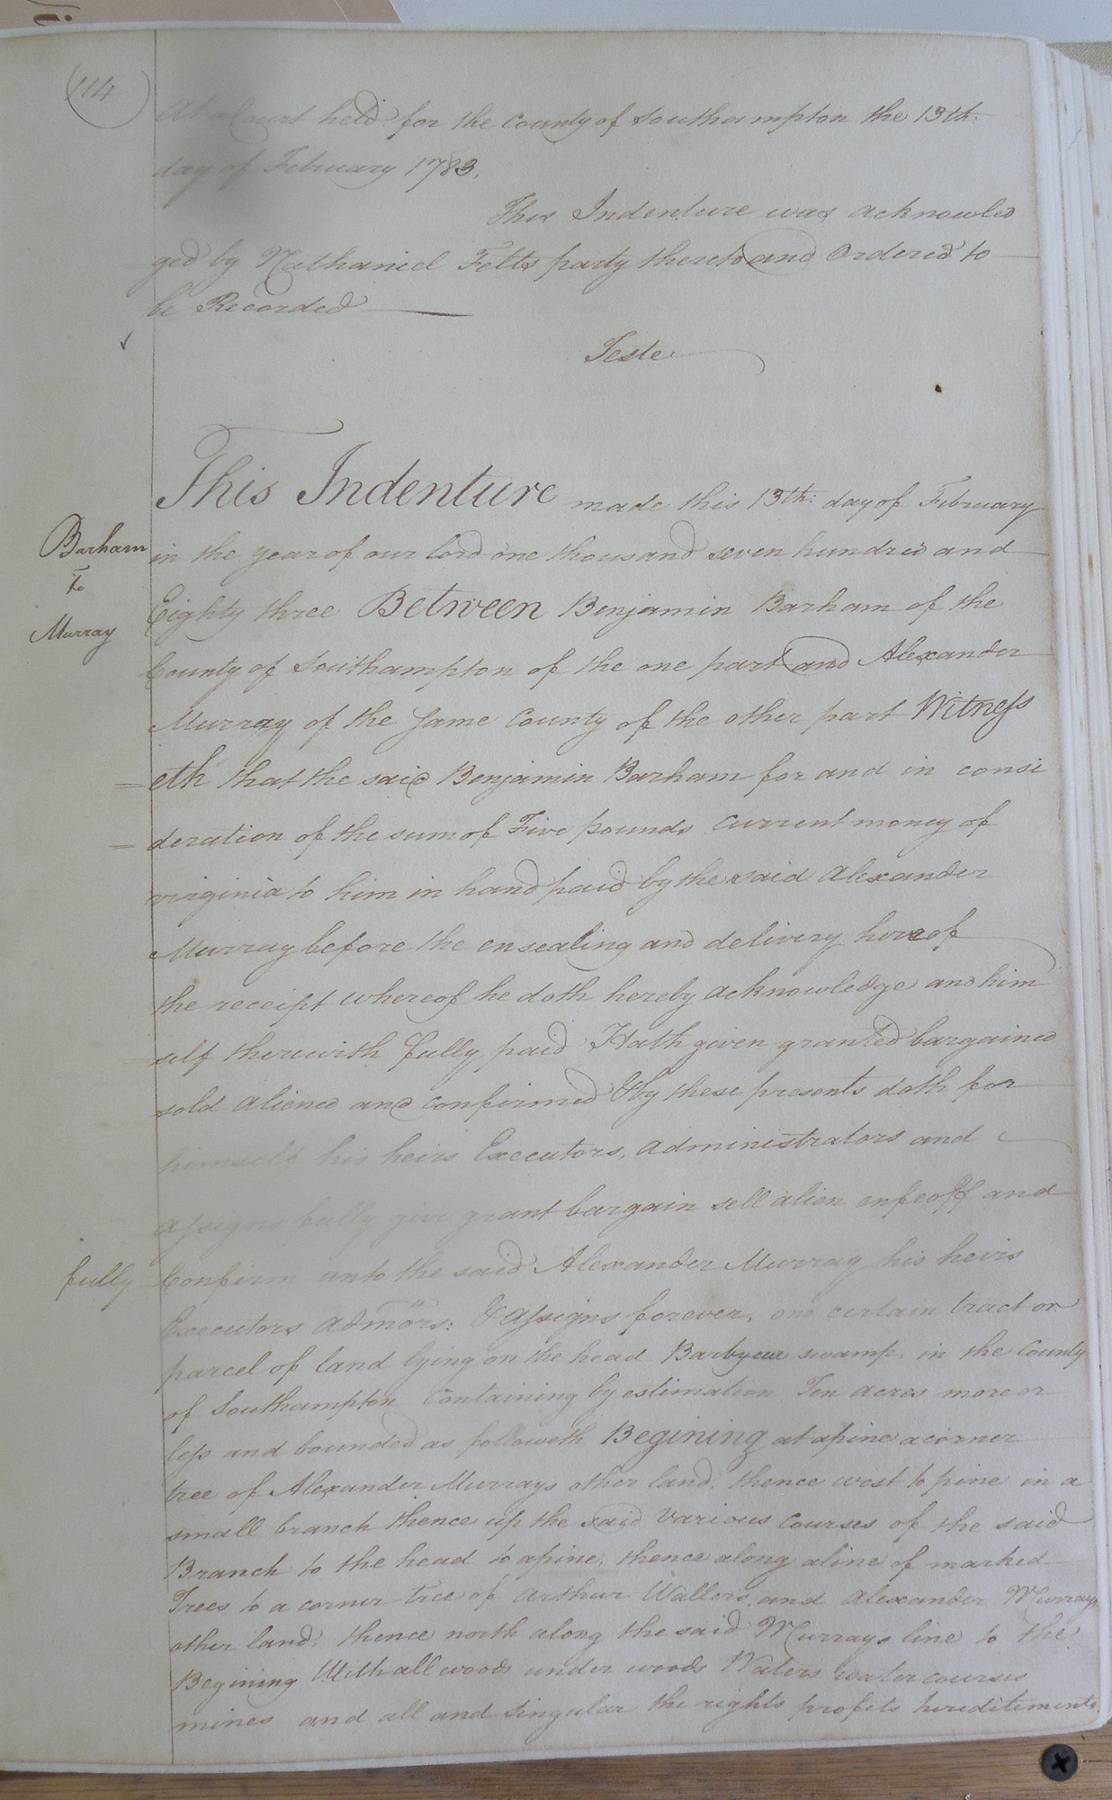 114
At a Court held for the County of Southampton the 13th:
day of February 1783.
This Indenture was acknowled
ged by Nathaniel Felts party thereto and Ordered to
be Recorded
Teste
This Indenture made this 13th: day of February
Barham
To
Murray
in the year of our lord one thousand seven hundred and
Eighty three Between Benjamin Barham of the
County of Southampton of the one part and Alexander
Murray of the same County of the other part Witness
eth that the said Benjamin Barham for and in consi
deration of the sum of Five pounds current money of
virginia to him in hand paid by the said Alexander
Murray before the ensealing and delivery hereof
the receipt whereof he doth hereby acknowledge and him
self therewith fully paid Hath given granted bargained
sold aliened and confirmed & by these presents doth for
himself his heirs Executors, administrators and
assigns fully give grant bargain sell alien enfeoff and
fully
Confirm unto the said Alexander Murray his heirs
Executors admors: & assigns forever, one certain tract or
parcel of land lying on the head Barbycue swamp, in the County
of Southampton Containing by estimation Ten acres more or
less and bounded as followeth Begining at a pine a corner
tree of Alexander Murrays other land, thence west to pine in a
small branch thence up the said various courses of the said
Branch to the head to a pine, thence along a line of marked
Trees to a corner tree of Arthur Wallers, and Alexander Murrays
other land, thence north along the said Murrays line to the
Begining With all woods under woods Waters water courses
mines and all and singular the rights profits hereditiments